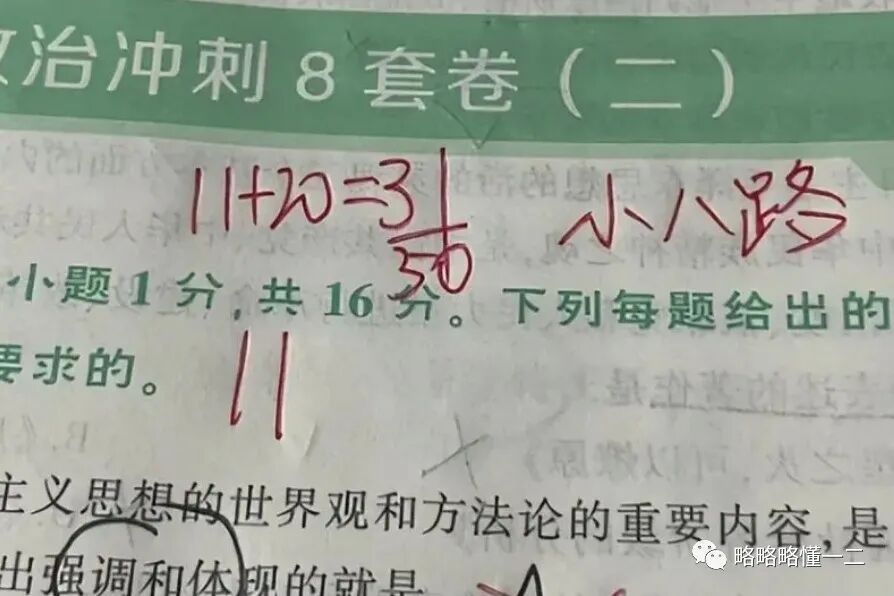 治冲刺8套卷（二）
11+20=31 小八路
50
小题1分，共16分。下列每题给出的
要求的。 11
主义思想的世界观和方法论的重要内容，是
出强调和体现的就是
略略略懂一二